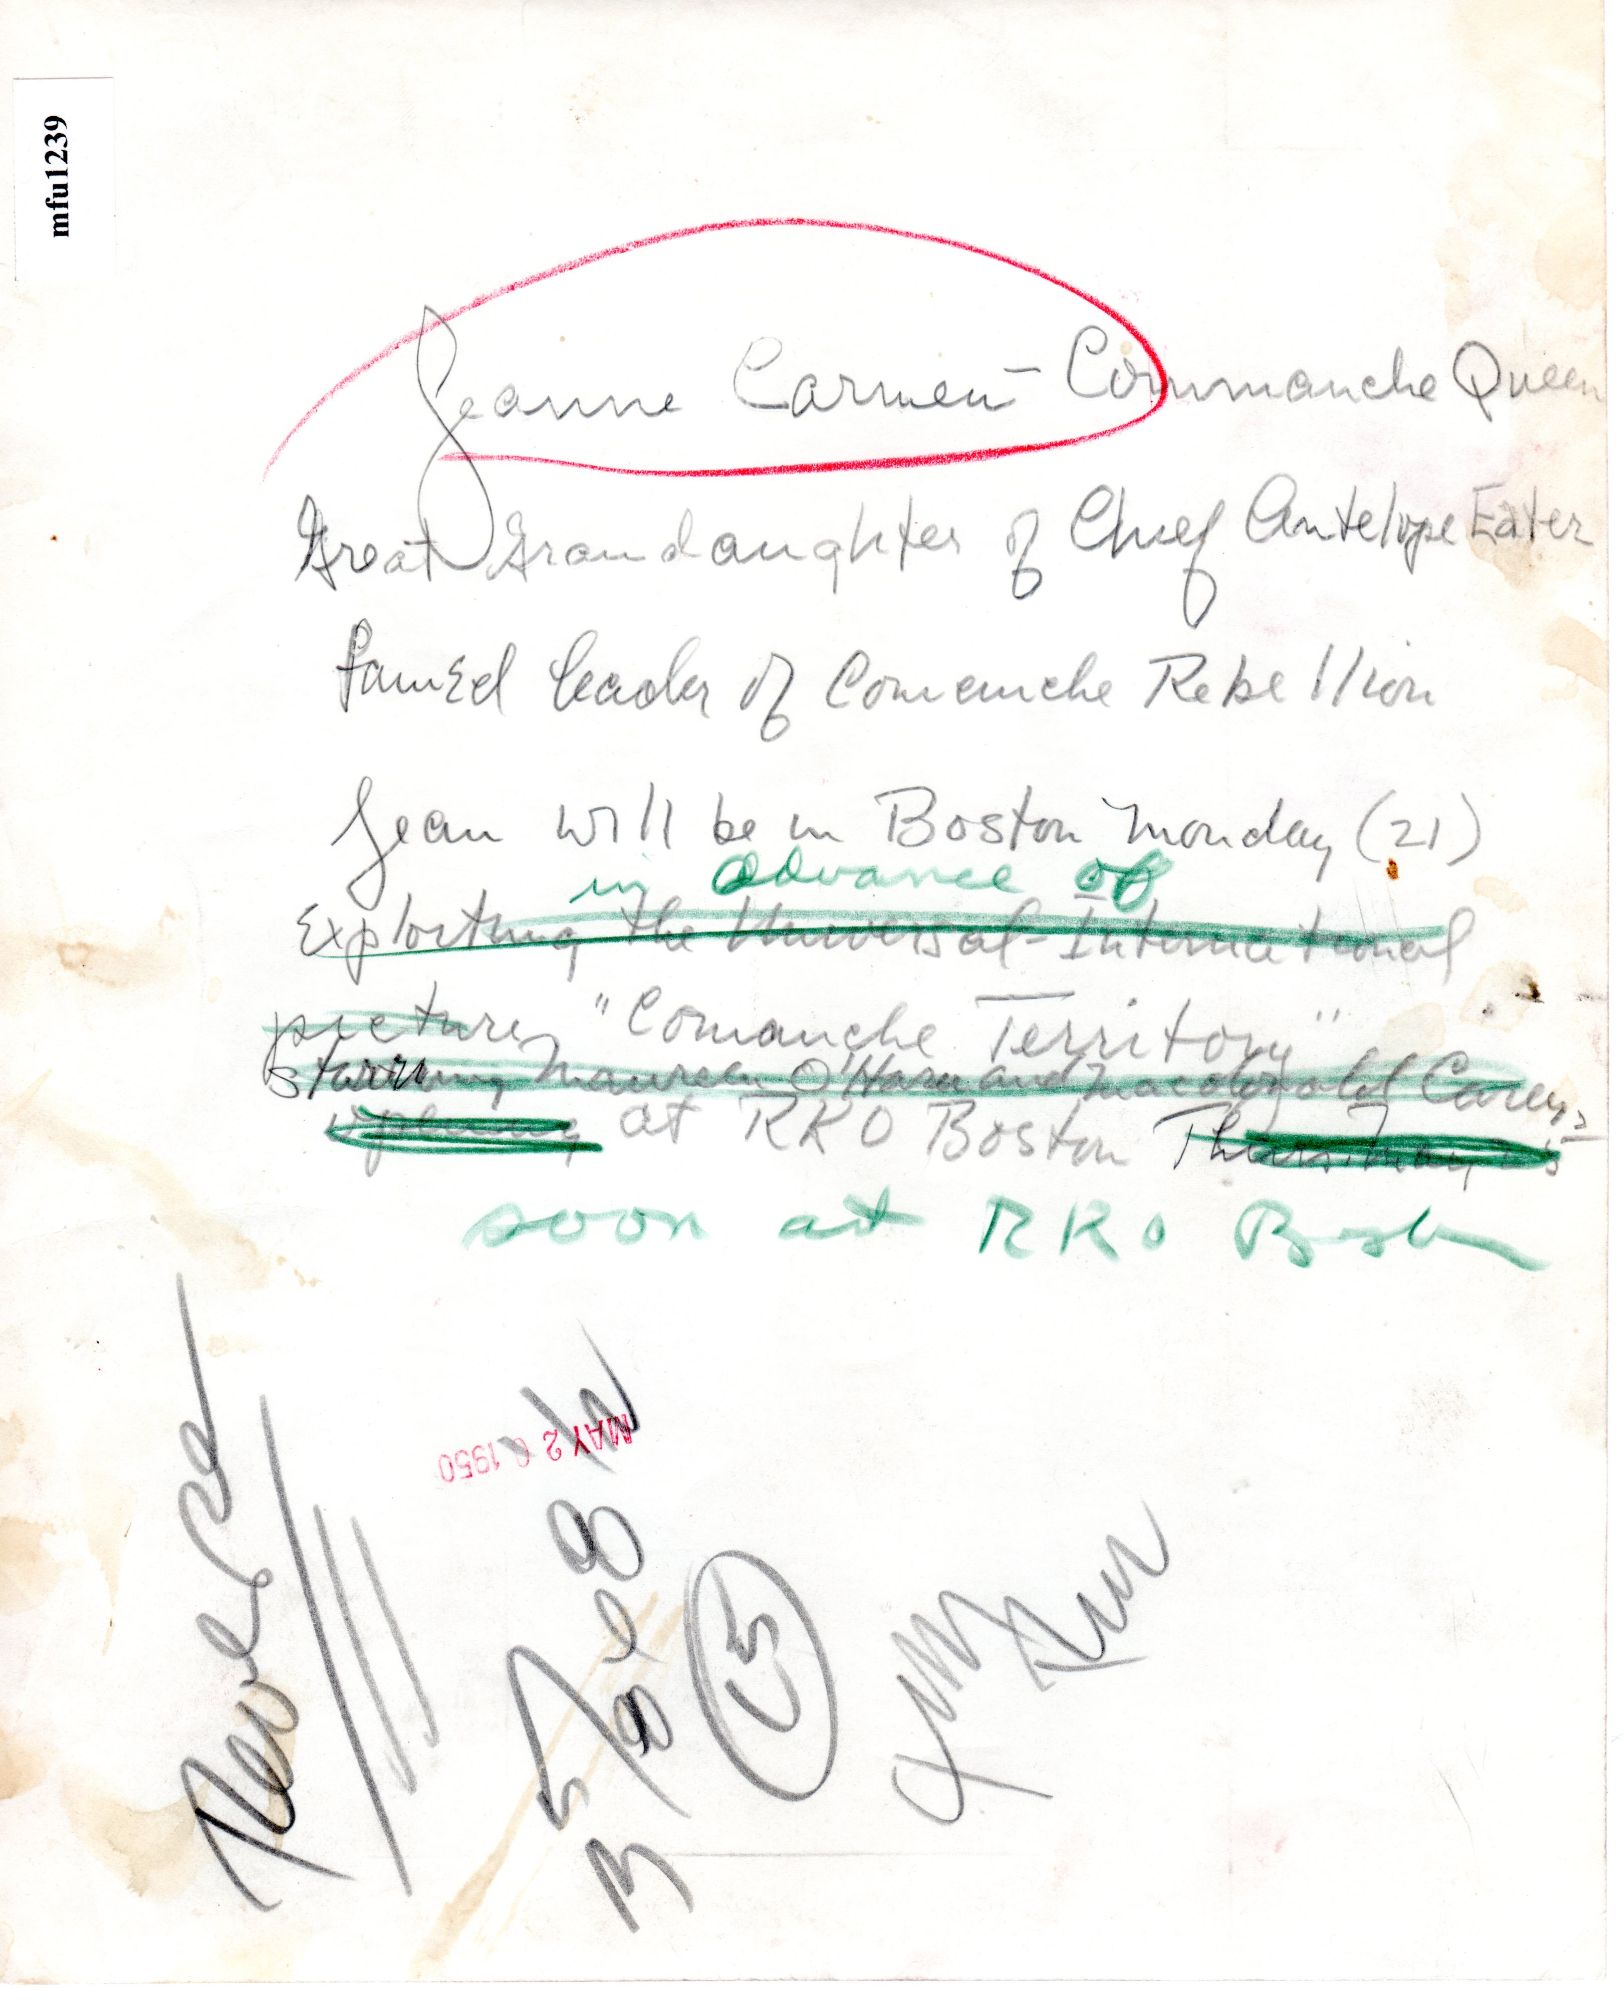 mfu1239
Jeanne Carmen - Commanche Queen
Great Grandaughter of Chief Antelope Eater
famed leader of Comanche Rebellion
Jean will be in Boston Monday (21)
in advance of
Exploiting the Universal-International
picture, "Comanche Territory"
starring Maureen O'Hara and Macdonald Carey,
opening at RKO Boston Thurs. May 25
soon at RKO Bost
MAY 2 1950